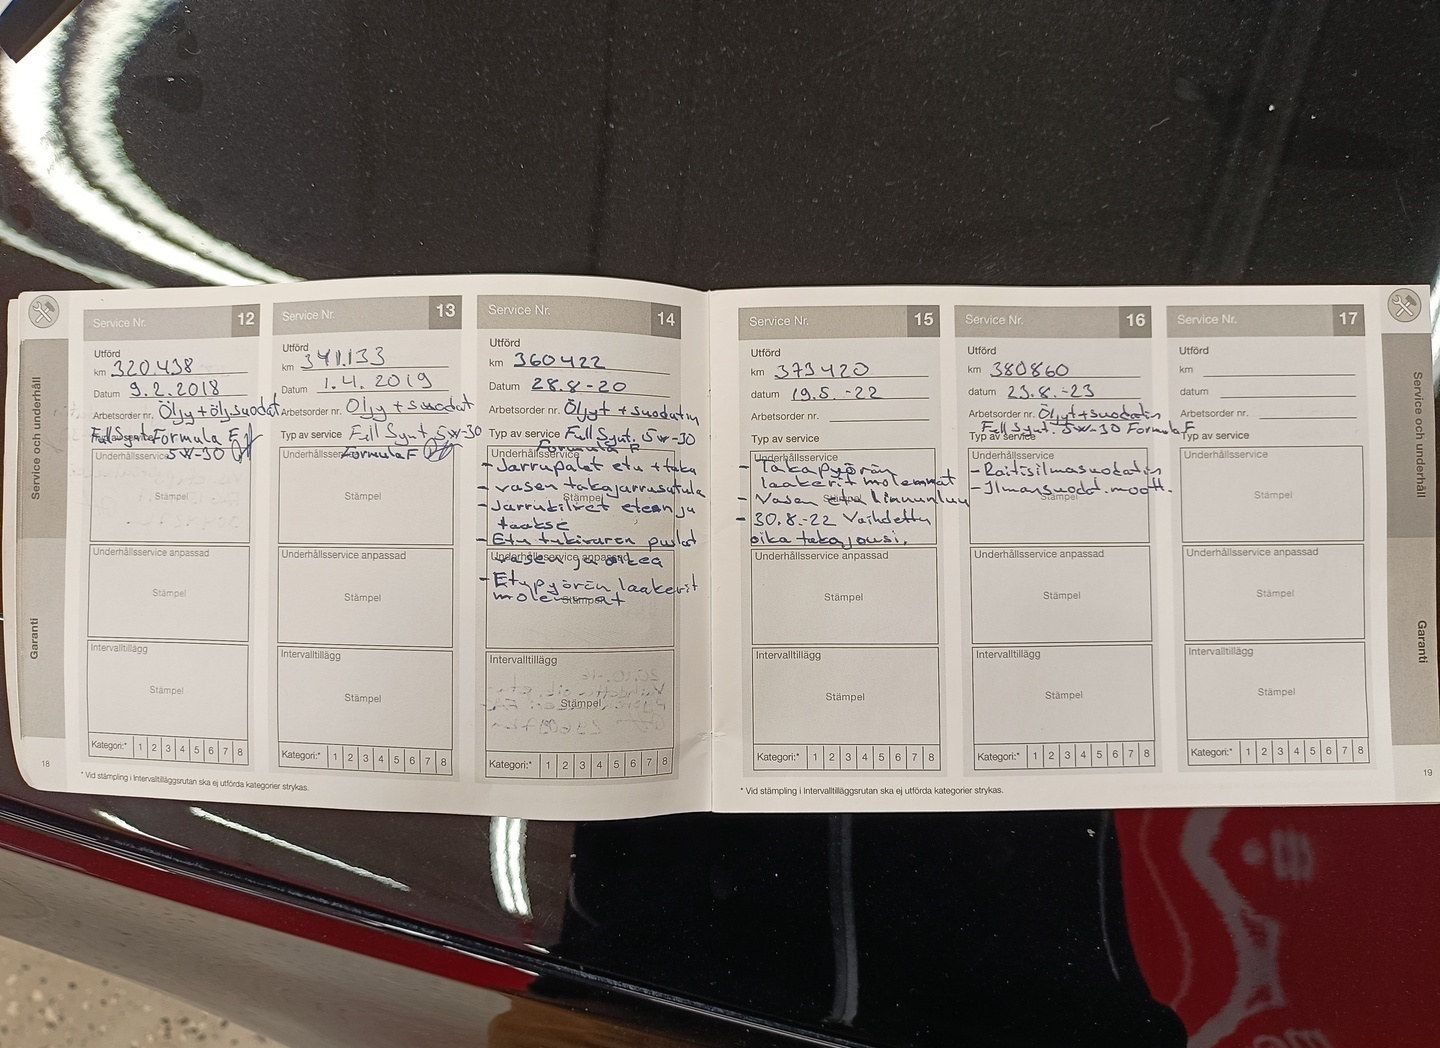 Service och underhåll
Garanti
18
Service Nr. 12
Utförd
km 320.438
Datum 9.2.2018
Arbetsorder nr. Öljy + öljsuodat
Typ av service Full Synt. Formula F
5W-30
Underhållsservice
Stämpel
Underhållsservice anpassad
Stämpel
Intervalltillägg
Stämpel
Kategori:* 1 2 3 4 5 6 7 8
* Vid stämpling i Intervalltilläggsrutan ska ej utförda kategorier strykas.
Service Nr. 13
Utförd
km 341.133
Datum 1.4.2019
Arbetsorder nr. Öljy + suodat
Typ av service Full Synt 5W-30
Formula F
Underhållsservice
Stämpel
Underhållsservice anpassad
Stämpel
Intervalltillägg
Stämpel
Kategori:* 1 2 3 4 5 6 7 8
Service Nr. 14
Utförd
km 360422
Datum 28.8-20
Arbetsorder nr. Öljyt + suodatin
Typ av service Full Synt. 5W-30
Formula F
Underhållsservice
- Jarrupalat etu + taka
- vasen takajarrusatula
Stämpel
- Jarrukilvet eteen ja
taakse
- Etu tukivarren puslat
Underhållsservice anpassad
vasen ja oikea
- Etupyörän laakerit
molemmat
Stämpel
Intervalltillägg
Stämpel
Kategori:* 1 2 3 4 5 6 7 8
Service Nr. 15
Utförd
km 373420
datum 19.5.-22
Arbetsorder nr.
Typ av service
Underhållsservice
- Takapyörän
laakerit molemmat
- Vasen etu linnunluu
Stämpel
- 30.8.-22 Vaihdettu
oika takajousi.
Underhållsservice anpassad
Stämpel
Intervalltillägg
Stämpel
Kategori:* 1 2 3 4 5 6 7 8
* Vid stämpling i Intervalltilläggsrutan ska ej utförda kategorier strykas.
Service Nr. 16
Utförd
km 380860
datum 23.8.-23
Arbetsorder nr. Öljyt + suodatin
Full Synt. 5W-30 Formula F
Typ av service
Underhållsservice
- Raitisilmasuodatin
- Ilmansuodat. moott.
Stämpel
Underhållsservice anpassad
Stämpel
Intervalltillägg
Stämpel
Kategori:* 1 2 3 4 5 6 7 8
Service Nr. 17
Utförd
km
datum
Arbetsorder nr.
Typ av service
Underhållsservice
Stämpel
Underhållsservice anpassad
Stämpel
Intervalltillägg
Stämpel
Kategori:* 1 2 3 4 5 6 7 8
Service och underhåll
Garanti
19